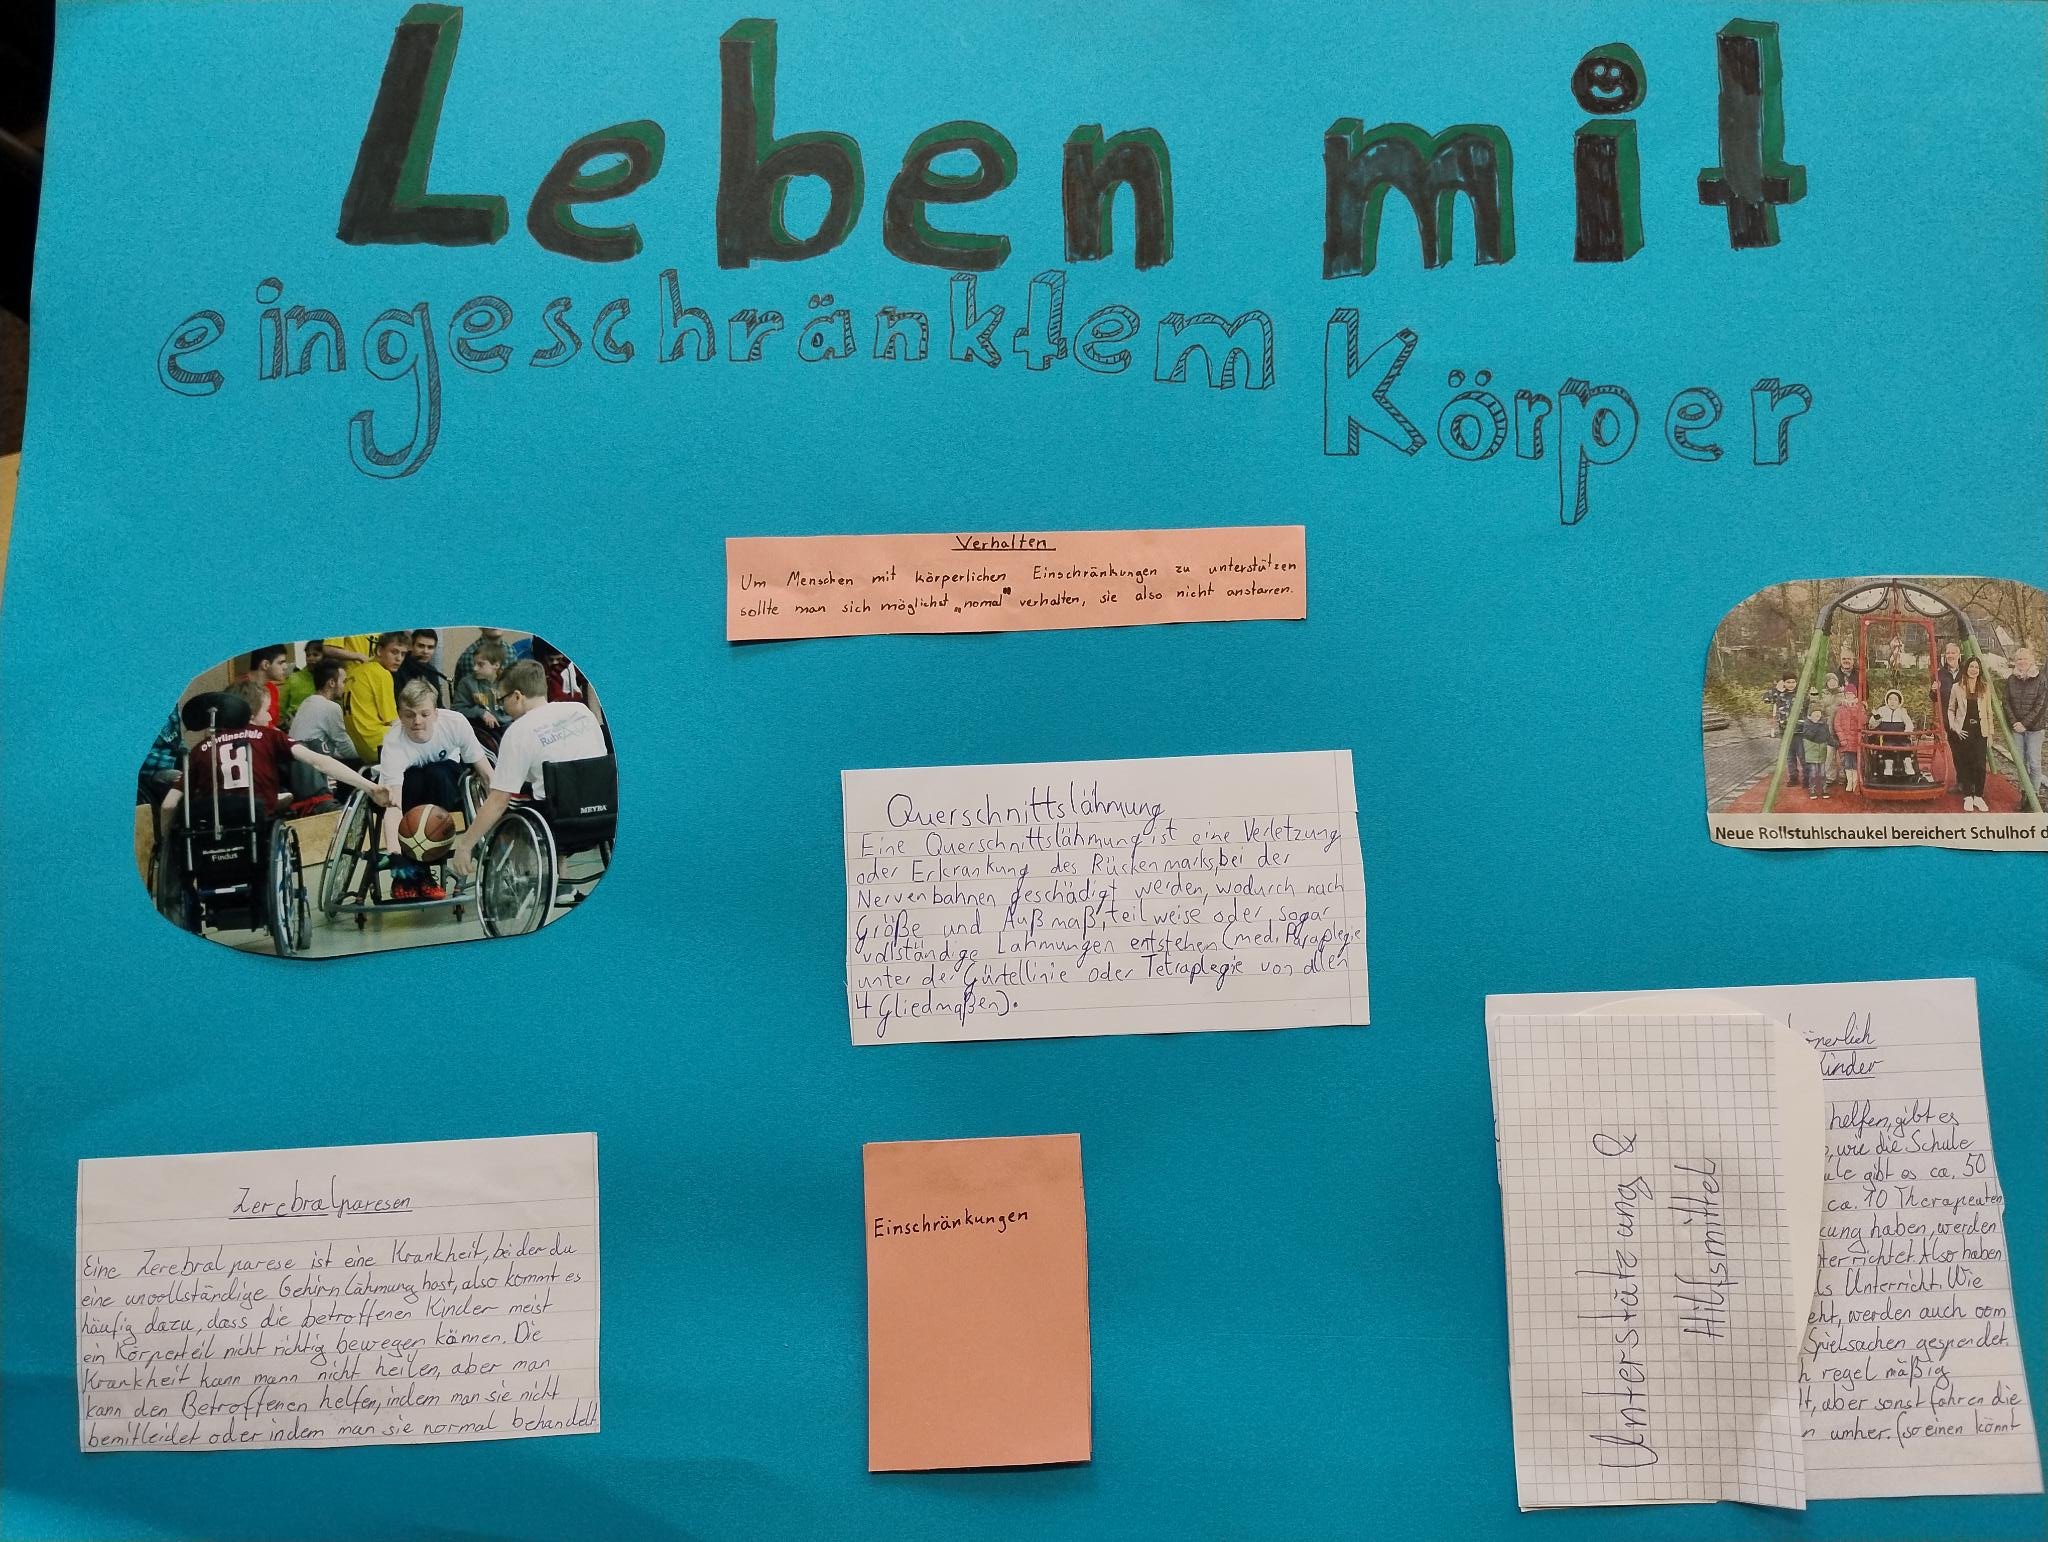 Leben mit
eingeschränktem Körper
Verhalten
Um Menschen mit körperlichen Einschränkungen zu unterstützen
sollte man sich möglichst „nomal" verhalten, sie also nicht anstarren.
Oberlinschule
8
Findus
Ruhr
MEYRA
Neue Rollstuhlschaukel bereichert Schulhof d
Querschnittslähmung
Eine Querschnittslähmung ist eine Verletzung
oder Erkrankung des Rückenmarks, bei der
Nervenbahnen geschädigt werden, wodurch nach
Größe und Außmaß, teilweise oder sogar
vollständige Lähmungen entstehen (med. Paraplegie
unter der Gürtellinie oder Tetraplegie von allen
4 Gliedmaßen).
Zerebralparesen
Eine Zerebralparese ist eine Krankheit, bei der du
eine unvollständige Gehirnlähmung hast, also kommt es
häufig dazu, dass die betroffenen Kinder meist
ein Körperteil nicht richtig bewegen können. Die
Krankheit kann mann nicht heilen, aber man
kann den Betroffenen helfen, indem man sie nicht
bemitleidet oder indem man sie normal behandelt.
Einschränkungen
Unterstützung &
Hilfsmittel
örperlich
Kinder
helfen, gibt es
, wie die Schule
ule gibt es ca. 50
ca. 10 Therapeuten
kung haben, werden
terrichtet. Also haben
ls Unterricht. Wie
eht, werden auch vom
Spielsachen gespendet.
h regelmäßig
lt, aber sonst fahren die
n umher. (so einen könnt